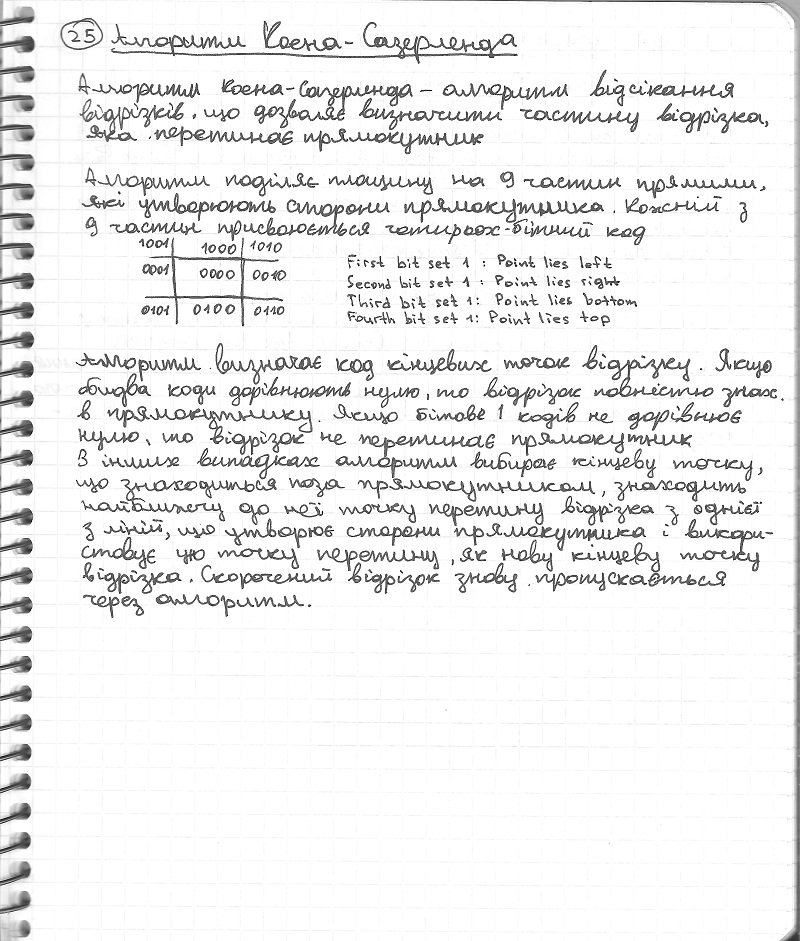 25 Алгоритм Коена-Сазерленда
Алгоритм Коена-Сазерленда – алгоритм відсікання
відрізків, що дозволяє визначити частину відрізка,
яка перетинає прямокутник
Алгоритм поділяє площину на 9 частин прямими,
які утворюють сторони прямокутника. Кожній з
9 частин присвоюється чотирьох-бітний код
1001 1000 1010
0001 0000 0010
0101 0100 0110
First bit set 1 : Point lies left
Second bit set 1 : Point lies right
Third bit set 1: Point lies bottom
Fourth bit set 1: Point lies top
Алгоритм визначає код кінцевих точок відрізку. Якщо
обидва коди дорівнюють нулю, то відрізок повністю знах.
в прямокутнику. Якщо бітове І кодів не дорівнює
нулю, то відрізок не перетинає прямокутник
В інших випадках алгоритм вибирає кінцеву точку,
що знаходиться поза прямокутником, знаходить
найближчу до неї точку перетину відрізка з однієї
з ліній, що утворює сторони прямокутника і викори-
стовує цю точку перетину, як нову кінцеву точку
відрізка. Скорочений відрізок знову пропускається
через алгоритм.